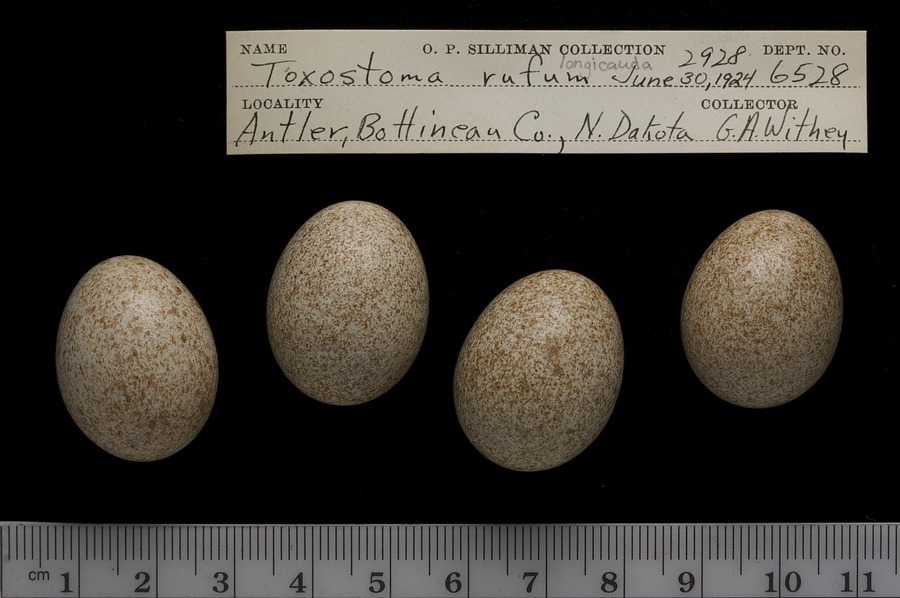 NAME O. P. SILLIMAN COLLECTION 2928 DEPT. NO.
longicauda
Toxostoma rufum June 30, 1924 6528
LOCALITY COLLECTOR
Antler, Bottineau Co., N. Dakota G. A. Withey
cm 1 2 3 4 5 6 7 8 9 10 11